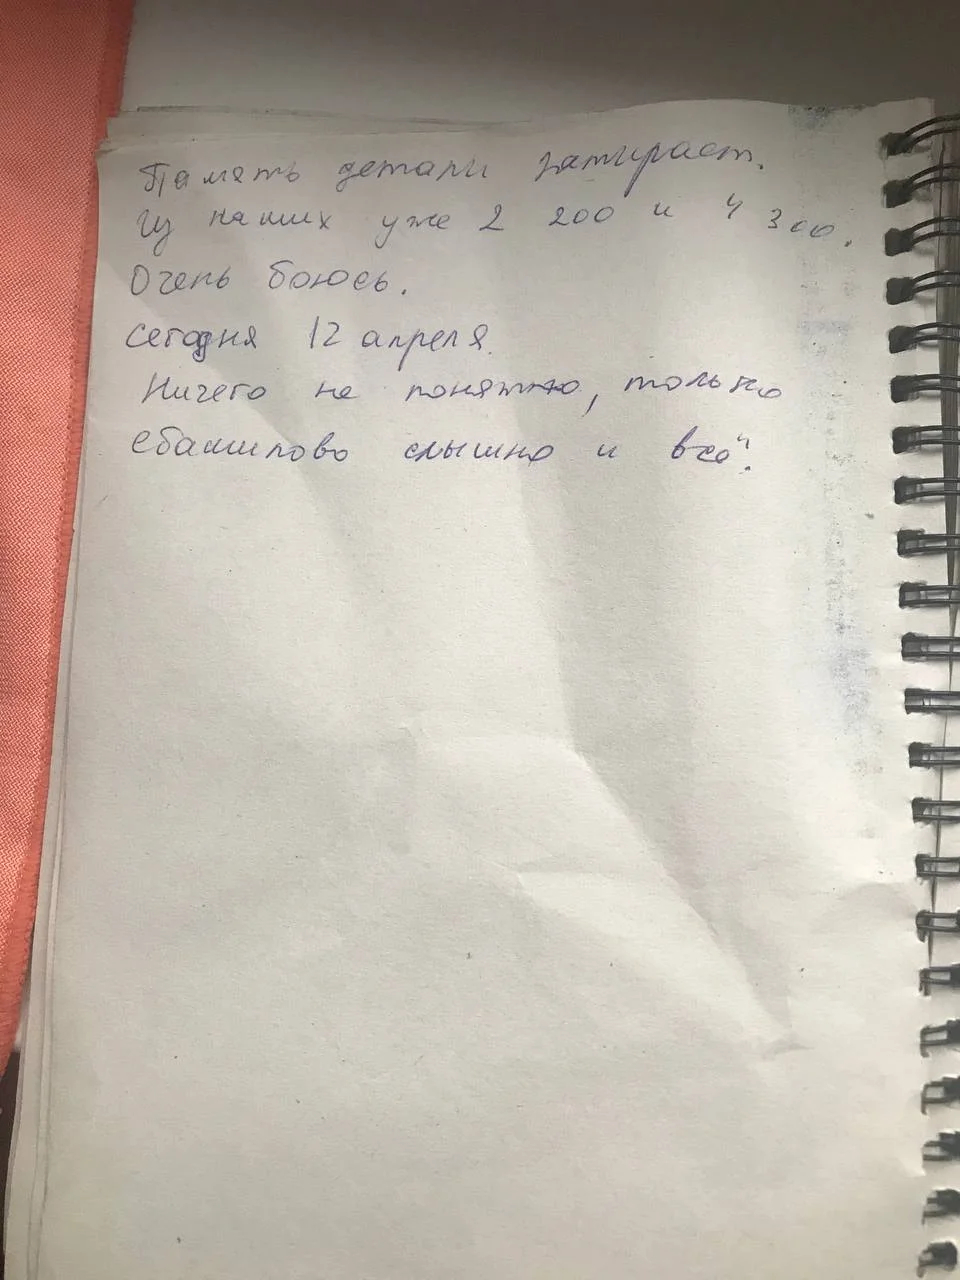 Память детали затирает.
Из наших уже 2 200 и 4 300.
Очень боюсь.
Сегодня 12 апреля.
Ничего не понятно, только
ебашилово слышно и всё".